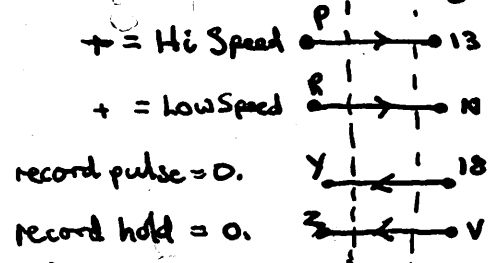 + = Hi Speed P 13
+ = Low Speed R
record pulse = 0. Y 18
record hold = 0. Z V